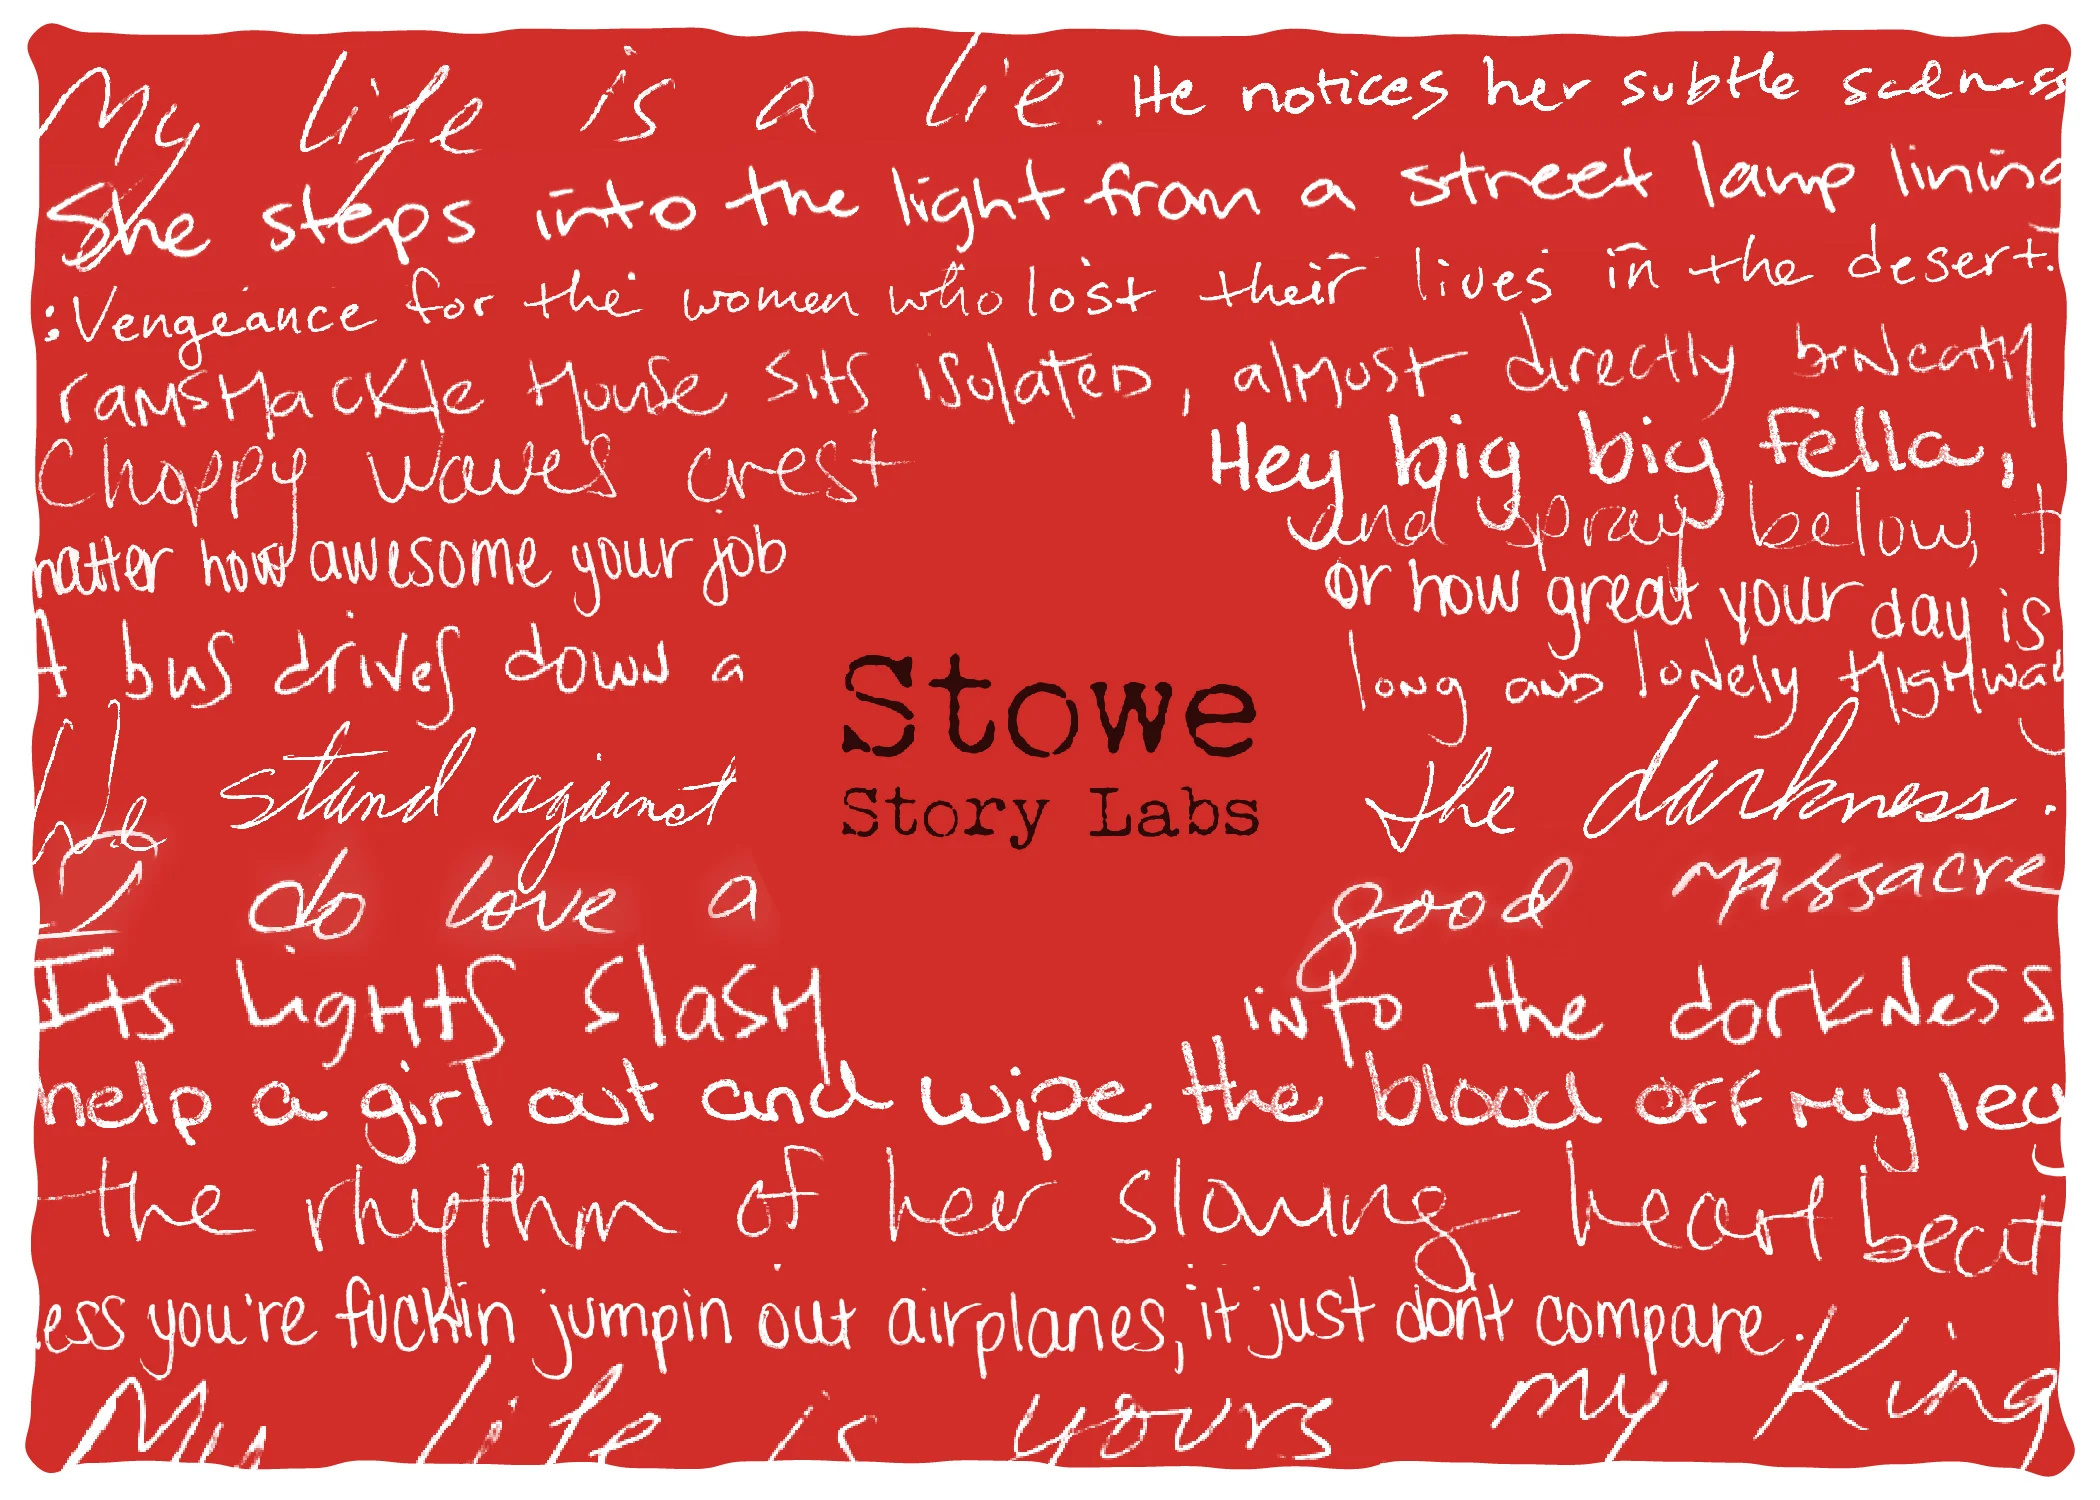 My life is a lie. He notices her subtle sadness
She steps into the light from a street lamp lining
:Vengeance for the women who lost their lives in the desert.
ramshackle House sits isolated, almost directly beneath
Choppy waves crest
Hey big big fella,
and spray below,
matter how awesome your job
or how great your day is
A bus drives down a
long and lonely Highway
Stowe
Story Labs
We stand against
the darkness.
I do love a
good massacre
Its lights slash
into the darkness
help a girl out and wipe the blood off my leg
the rhythm of her slowing heart beat
ess you're fuckin jumpin out airplanes, it just dont compare.
My life is yours my King